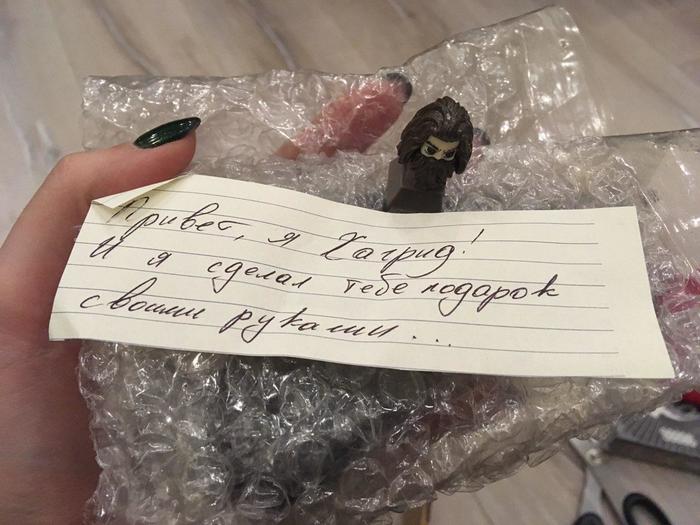 Привет, я Хагрид!
И я сделал тебе подарок
своими руками...